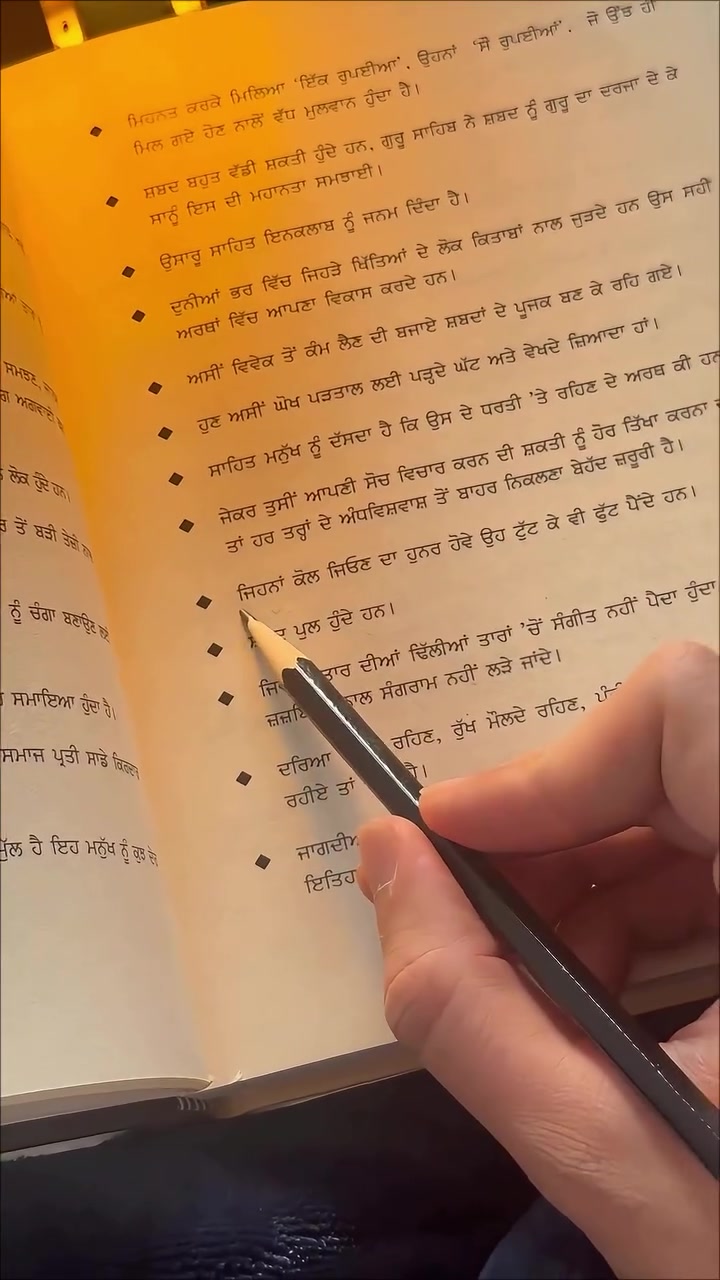 ਮਿਹਨਤ ਕਰਕੇ ਮਿਲਿਆ 'ਇੱਕ ਰੁਪਈਆ', ਉਹਨਾਂ 'ਸੌ ਰੁਪਈਆਂ', ਜੋ ਉਂਝ ਹੀ
ਮਿਲ ਗਏ ਹੋਣ ਨਾਲੋਂ ਵੱਧ ਮੁਲਵਾਨ ਹੁੰਦਾ ਹੈ।
ਸ਼ਬਦ ਬਹੁਤ ਵੱਡੀ ਸ਼ਕਤੀ ਹੁੰਦੇ ਹਨ, ਗੁਰੂ ਸਾਹਿਬ ਨੇ ਸ਼ਬਦ ਨੂੰ ਗੁਰੂ ਦਾ ਦਰਜਾ ਦੇ ਕੇ
ਸਾਨੂੰ ਇਸ ਦੀ ਮਹਾਨਤਾ ਸਮਝਾਈ।
ਉਸਾਰੂ ਸਾਹਿਤ ਇਨਕਲਾਬ ਨੂੰ ਜਨਮ ਦਿੰਦਾ ਹੈ।
ਦੁਨੀਆਂ ਭਰ ਵਿੱਚ ਜਿਹੜੇ ਖਿੱਤਿਆਂ ਦੇ ਲੋਕ ਕਿਤਾਬਾਂ ਨਾਲ ਜੁੜਦੇ ਹਨ ਉਸ ਸਹੀ
ਅਰਥਾਂ ਵਿੱਚ ਆਪਣਾ ਵਿਕਾਸ ਕਰਦੇ ਹਨ।
ਅਸੀਂ ਵਿਵੇਕ ਤੋਂ ਕੰਮ ਲੈਣ ਦੀ ਬਜਾਏ ਸ਼ਬਦਾਂ ਦੇ ਪੂਜਕ ਬਣ ਕੇ ਰਹਿ ਗਏ।
ਹੁਣ ਅਸੀਂ ਘੋਖ ਪੜਤਾਲ ਲਈ ਪੜ੍ਹਦੇ ਘੱਟ ਅਤੇ ਵੇਖਦੇ ਜ਼ਿਆਦਾ ਹਾਂ।
ਸਾਹਿਤ ਮਨੁੱਖ ਨੂੰ ਦੱਸਦਾ ਹੈ ਕਿ ਉਸ ਦੇ ਧਰਤੀ 'ਤੇ ਰਹਿਣ ਦੇ ਅਰਥ ਕੀ
ਜੇਕਰ ਤੁਸੀਂ ਆਪਣੀ ਸੋਚ ਵਿਚਾਰ ਕਰਨ ਦੀ ਸ਼ਕਤੀ ਨੂੰ ਹੋਰ ਤਿੱਖਾ ਕਰਨਾ
ਤਾਂ ਹਰ ਤਰ੍ਹਾਂ ਦੇ ਅੰਧਵਿਸ਼ਵਾਸ਼ ਤੋਂ ਬਾਹਰ ਨਿਕਲਣਾ ਬੇਹੱਦ ਜ਼ਰੂਰੀ ਹੈ।
ਜਿਹਨਾਂ ਕੋਲ ਜਿਓਣ ਦਾ ਹੁਨਰ ਹੋਵੇ ਉਹ ਟੁੱਟ ਕੇ ਵੀ ਫੁੱਟ ਪੈਂਦੇ ਹਨ।
ਪੁਲ ਹੁੰਦੇ ਹਨ।
ਦੀਆਂ ਢਿੱਲੀਆਂ ਤਾਰਾਂ 'ਚੋਂ ਸੰਗੀਤ ਨਹੀਂ ਪੈਦਾ ਹੁੰਦਾ
ਸੰਗਰਾਮ ਨਹੀਂ ਲੜੇ ਜਾਂਦੇ।
ਦਰਿਆ ਰਹਿਣ, ਰੁੱਖ ਮੌਲਦੇ ਰਹਿਣ,
ਰਹੀਏ ਤਾਂ ਹੈ।
ਲੋਕ ਹੁੰਦੇ ਹਨ।
ਤੋਂ ਬੜੀ ਤੇਜ਼ੀ
ਨੂੰ ਚੰਗਾ ਬਣਾਉਣ
ਸਮਾਇਆ ਹੁੰਦਾ ਹੈ।
ਸਮਾਜ ਪ੍ਰਤੀ ਸਾਡੇ
ਹੈ ਇਹ ਮਨੁੱਖ ਨੂੰ ਕੁਝ